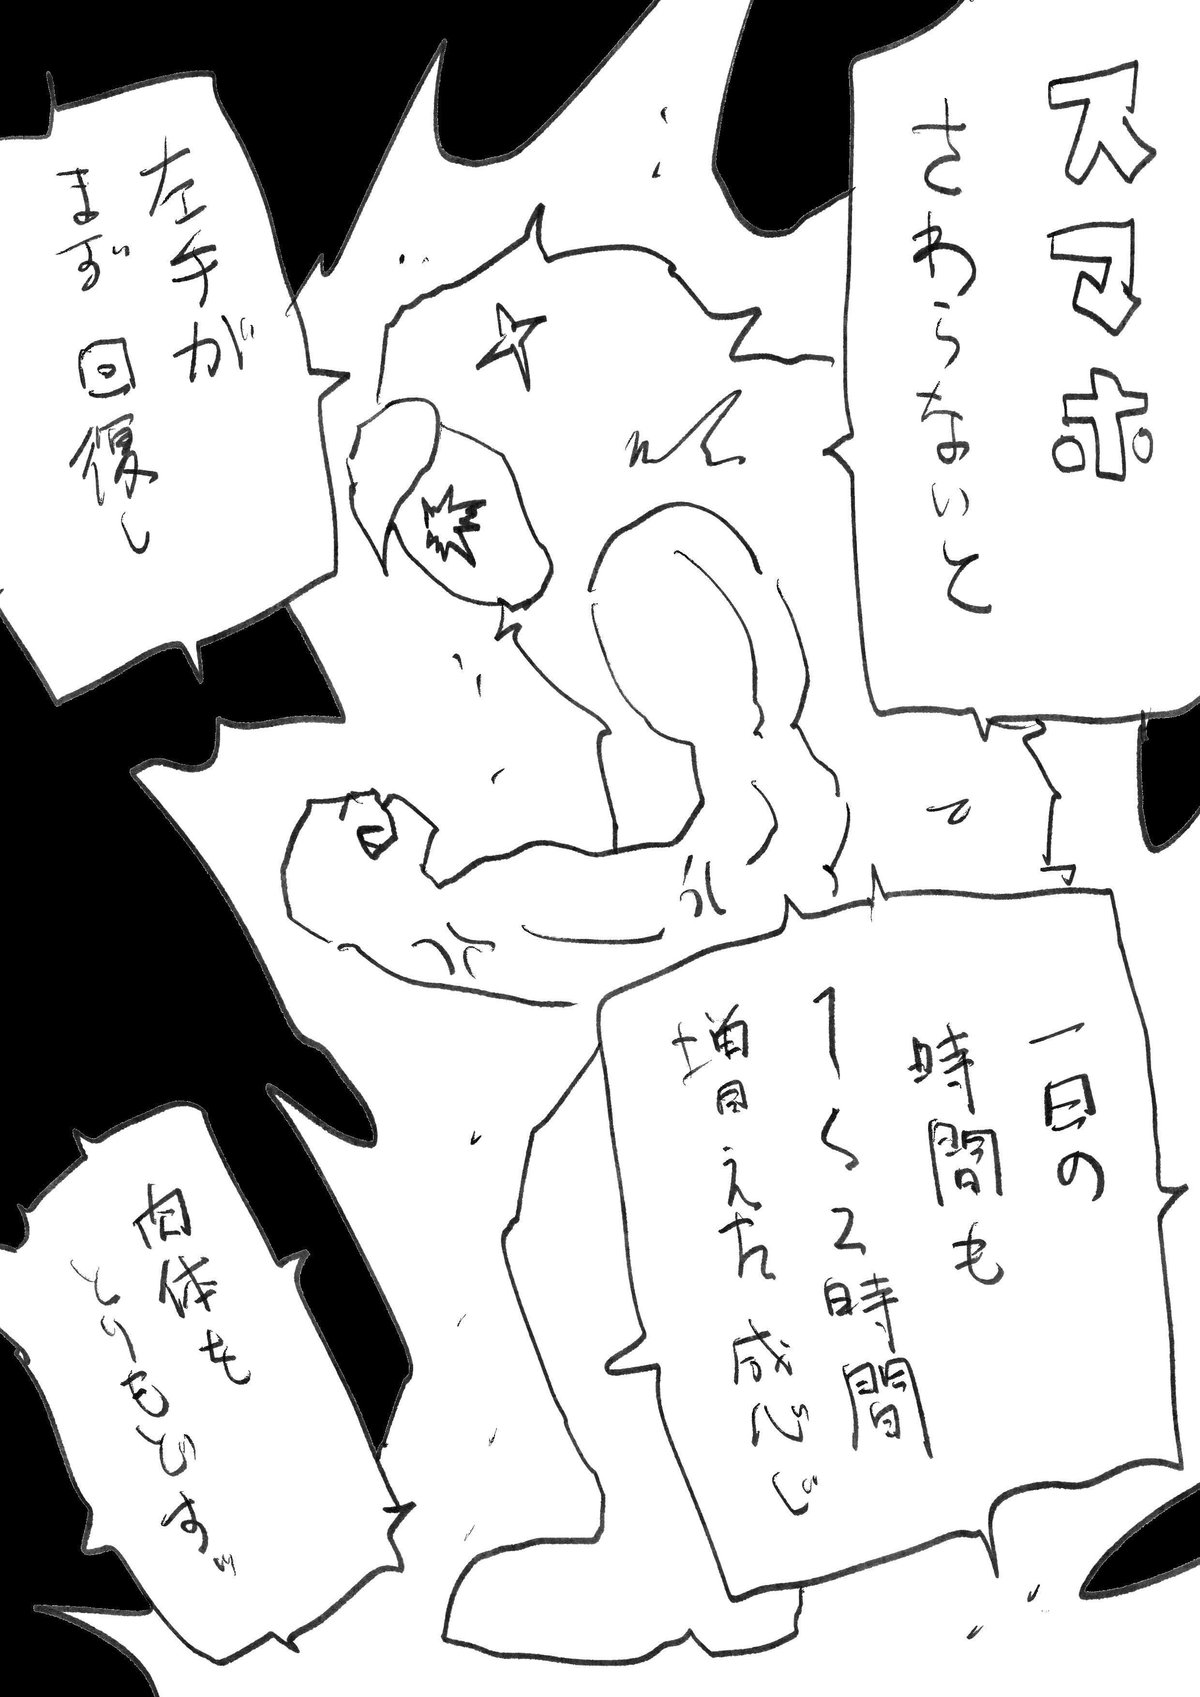 スマホ
さわらないと
左手が
まず回復し
一日の
時間も
1〜2時間
増えた感じ
肉体も
とりもどすッ